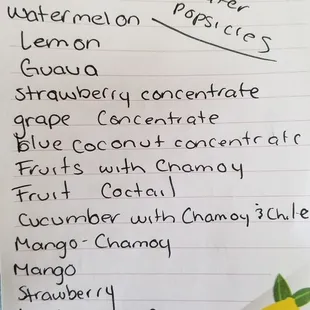 popsicles
watermelon
Lemon
Guava
strawberry concentrate
grape Concentrate
blue coconut concentrate
Fruits with Chamoy
Fruit Coctail
Cucumber with Chamoy & Chile
Mango-Chamoy
Mango
Strawberry